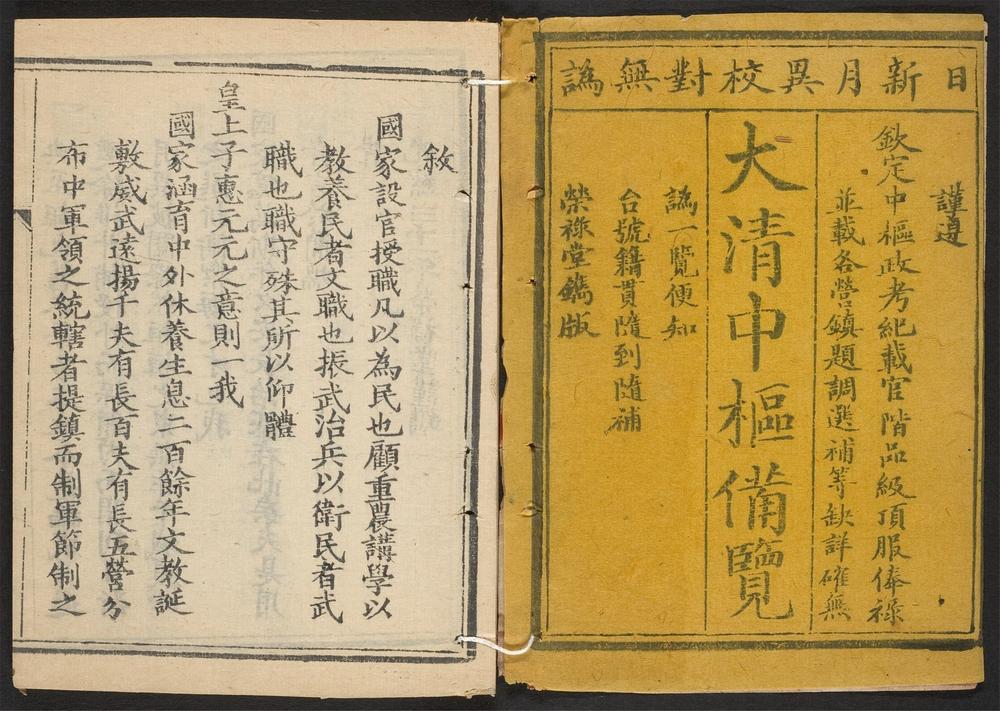 日新月異校對無譌
謹遵
欽定中樞政考紀載官階品級頂服俸祿
並載各營鎮題調選補等缺詳確無
大清中樞備覽
譌一覽便知
台號籍貫隨到隨補
榮祿堂鐫版
敘
國家設官授職凡以為民也顧重農講學以
教養民者文職也振武治兵以衛民者武
職也職守殊其所以仰體
皇上子惠元元之意則一我
國家涵育中外休養生息二百餘年文教誕
敷威武遠揚千夫有長百夫有長五營分
布中軍領之統轄者提鎮而制軍節制之